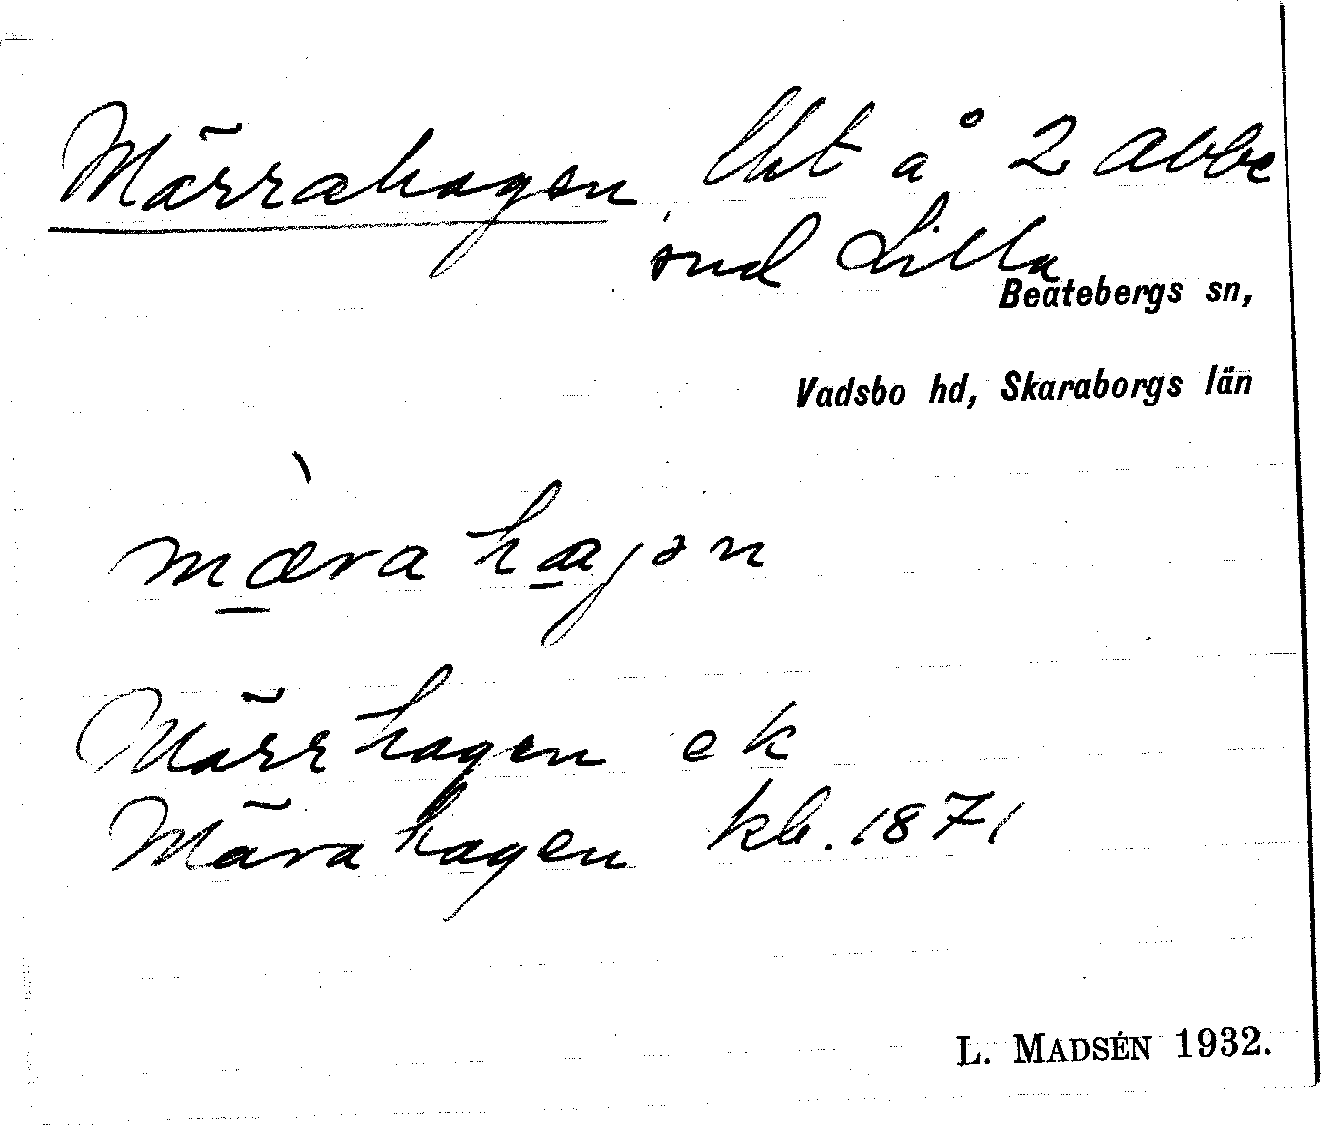 Märrahagen, lht å 2 Abbe
und Lilla
Beatebergs sn,
Vadsbo hd, Skaraborgs län
mæ̀rahagən
Märrhagen ek
Märahagen kb. 1871
L. MADSÉN 1932.